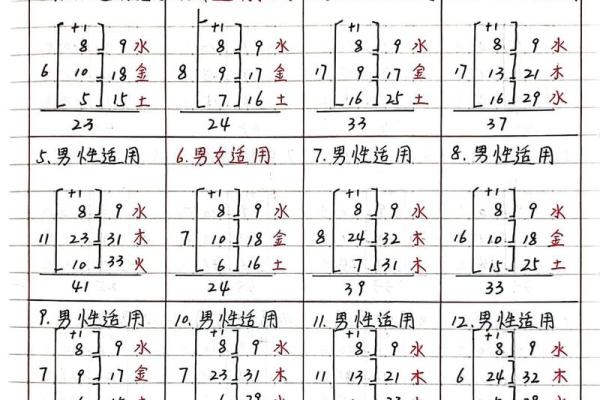 +1 +1 +1 +1
8 9 水 8 9 水 8 9 水 8 9 水
6 10 18 金 8 9 17 金 17 9 17 金 17 13 21 木
5 15 土 7 16 土 16 25 土 16 29 水
23 24 33 37
5.男性适用 6.男女适用 7.男性适用 8.男性适用
+1 +1 +1 +1
8 9 水 8 9 水 8 9 水 8 9 水
11 23 31 木 7 10 18 金 8 24 32 木 16 10 18 金
10 33 火 6 16 土 7 31 木 15 25 土
41 24 39 33
9.男性适用 10.男性适用 11.男性适用 12.男性适用
+1 +1 +1 +1
8 9 水 8 9 水 8 9 水 8 9 水
7 9 17 金 7 23 31 木 11 13 21 木 6 24 32 木